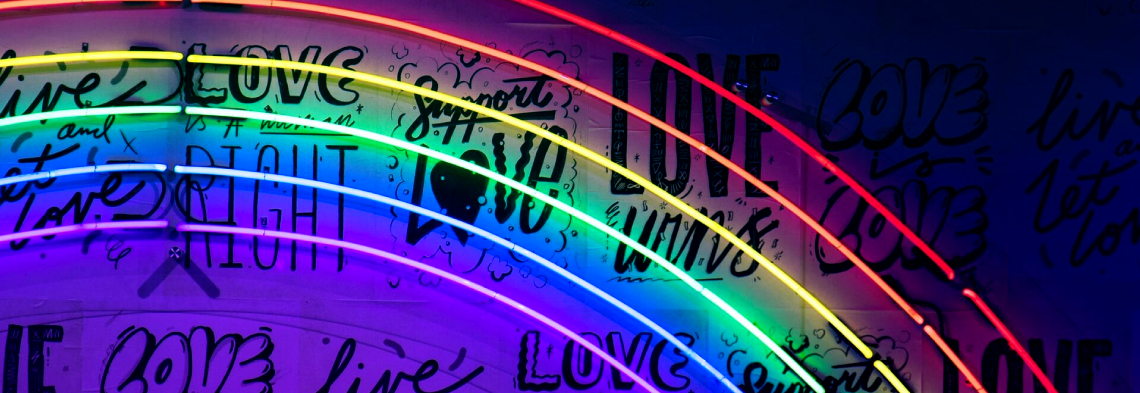 live
and
let
love
LOVE
is A human
RIGHT
Support
LOVE
LOVE
wins
LOVE
is
LOVE
live
let
LOVE
live
LOVE
Support
LOVE